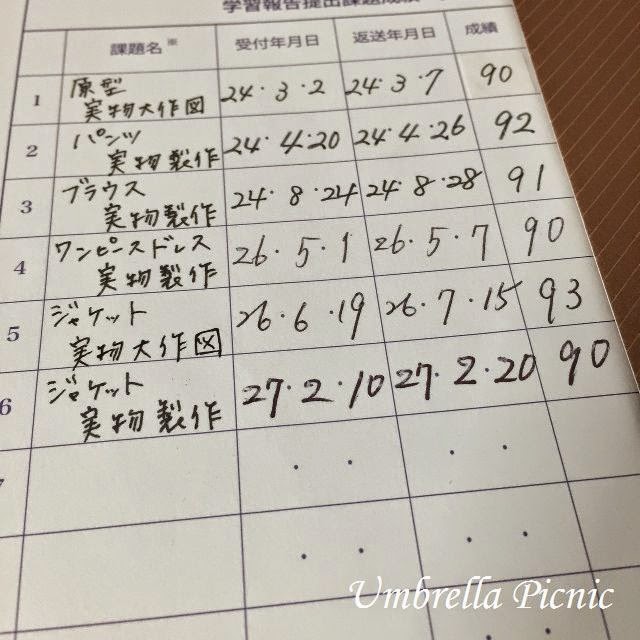 学習報告提出課題成績
課題名※ 受付年月日 返送年月日 成績
1 原型 実物大作図 24・3・2 24・3・7 90
2 パンツ 実物製作 24・4・20 24・4・26 92
3 ブラウス 実物製作 24・8・24 24・8・28 91
4 ワンピースドレス 実物製作 26・5・1 26・5・7 90
5 ジャケット 実物大作図 26・6・19 26・7・15 93
6 ジャケット 実物製作 27・2・10 27・2・20 90
Umbrella Picnic